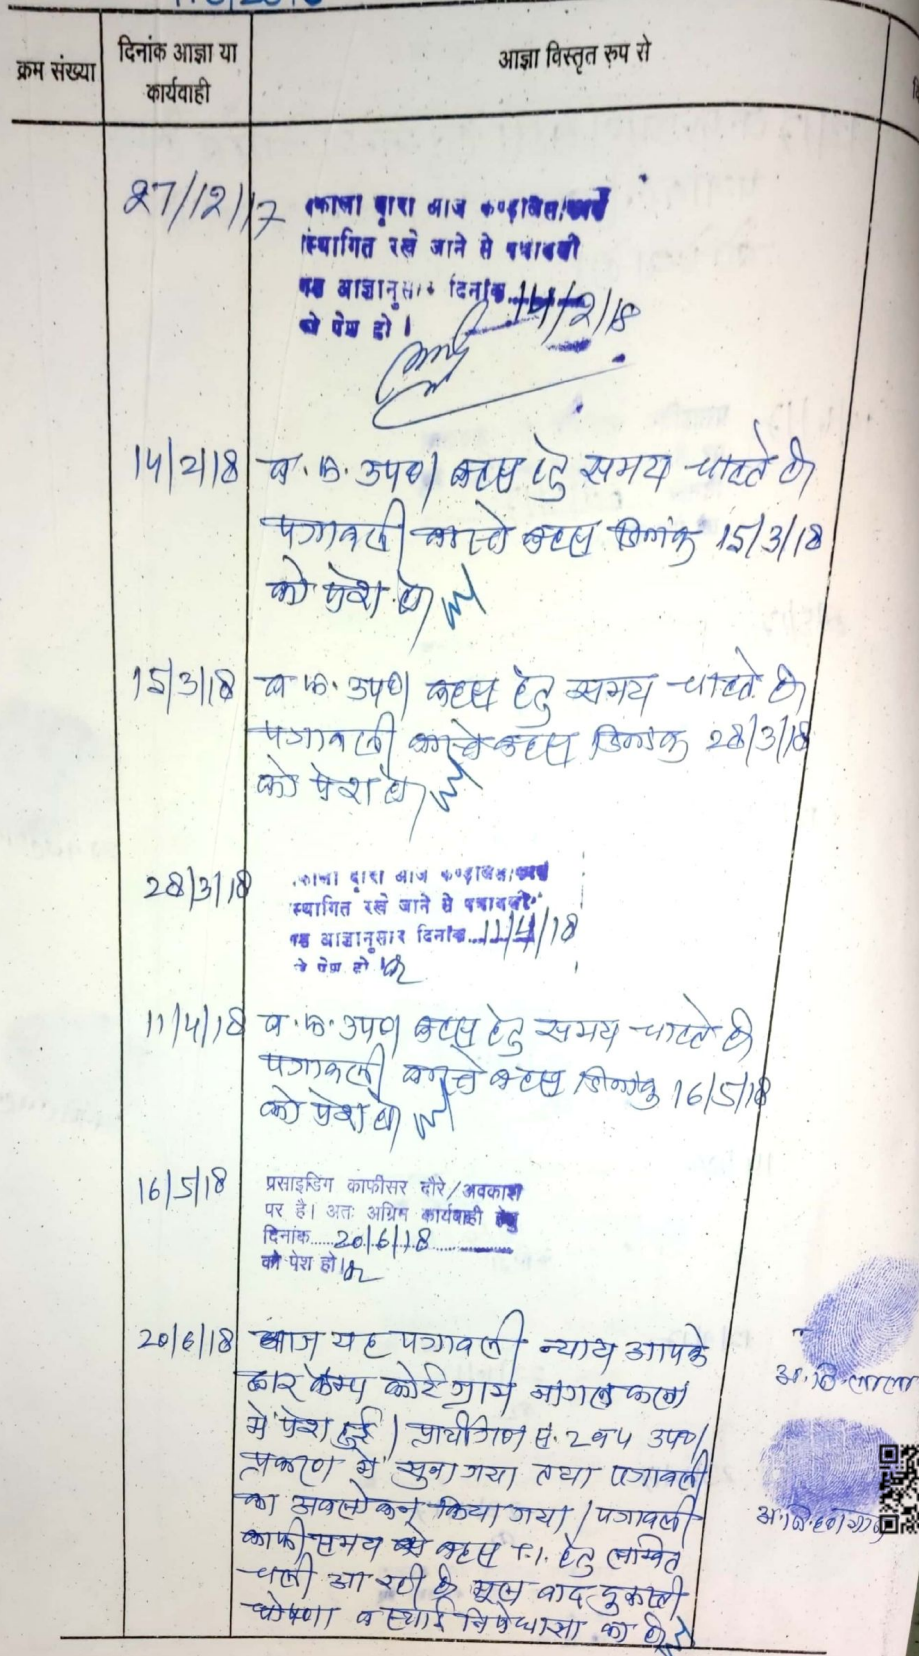 क्रम संख्या
दिनांक आज्ञा या
कार्यवाही
आज्ञा विस्तृत रुप से
27/12/17
द्वारा आज
स्थागित रखे जाने से पत्रावली
आज्ञानुसार दिनांक 14/2/18
को पेश हो।
14/2/18 व.फ. उप0। बहस हेतु समय चाहते है।
पत्रावली वास्ते बहस दिनांक 15/3/18
को पेश हो।
15/3/18 व.फ. उप0। बहस हेतु समय चाहते है।
पत्रावली वास्ते बहस दिनांक 28/3/18
को पेश हो।
28/3/18
द्वारा आज
स्थागित रखे जाने से पत्रावली
आज्ञानुसार दिनांक 11/4/18
को पेश हो।
11/4/18 व.फ. उप0। बहस हेतु समय चाहते है।
पत्रावली वास्ते बहस दिनांक 16/5/18
को पेश हो।
16/5/18
प्रसाइडिंग ऑफीसर दौरे/अवकाश
पर है। अतः अग्रिम कार्यवाही हेतु
दिनांक.....20/6/18
को पेश हो।
20/6/18 आज यह पत्रावली न्याय आपके
द्वार केम्प कोर्ट ग्राम कला
मे पेश हुई। प्रार्थीगण उप0।
प्रकरण मे सुना गया तथा पत्रावली
का अवलोकन किया गया। पत्रावली
काफी समय से बहस T.I. हेतु लम्बित
चली आ रही है मूल वाद
घोषणा व स्थाई निषेधाज्ञा का है
अ.नि.लाला
अ.नि.